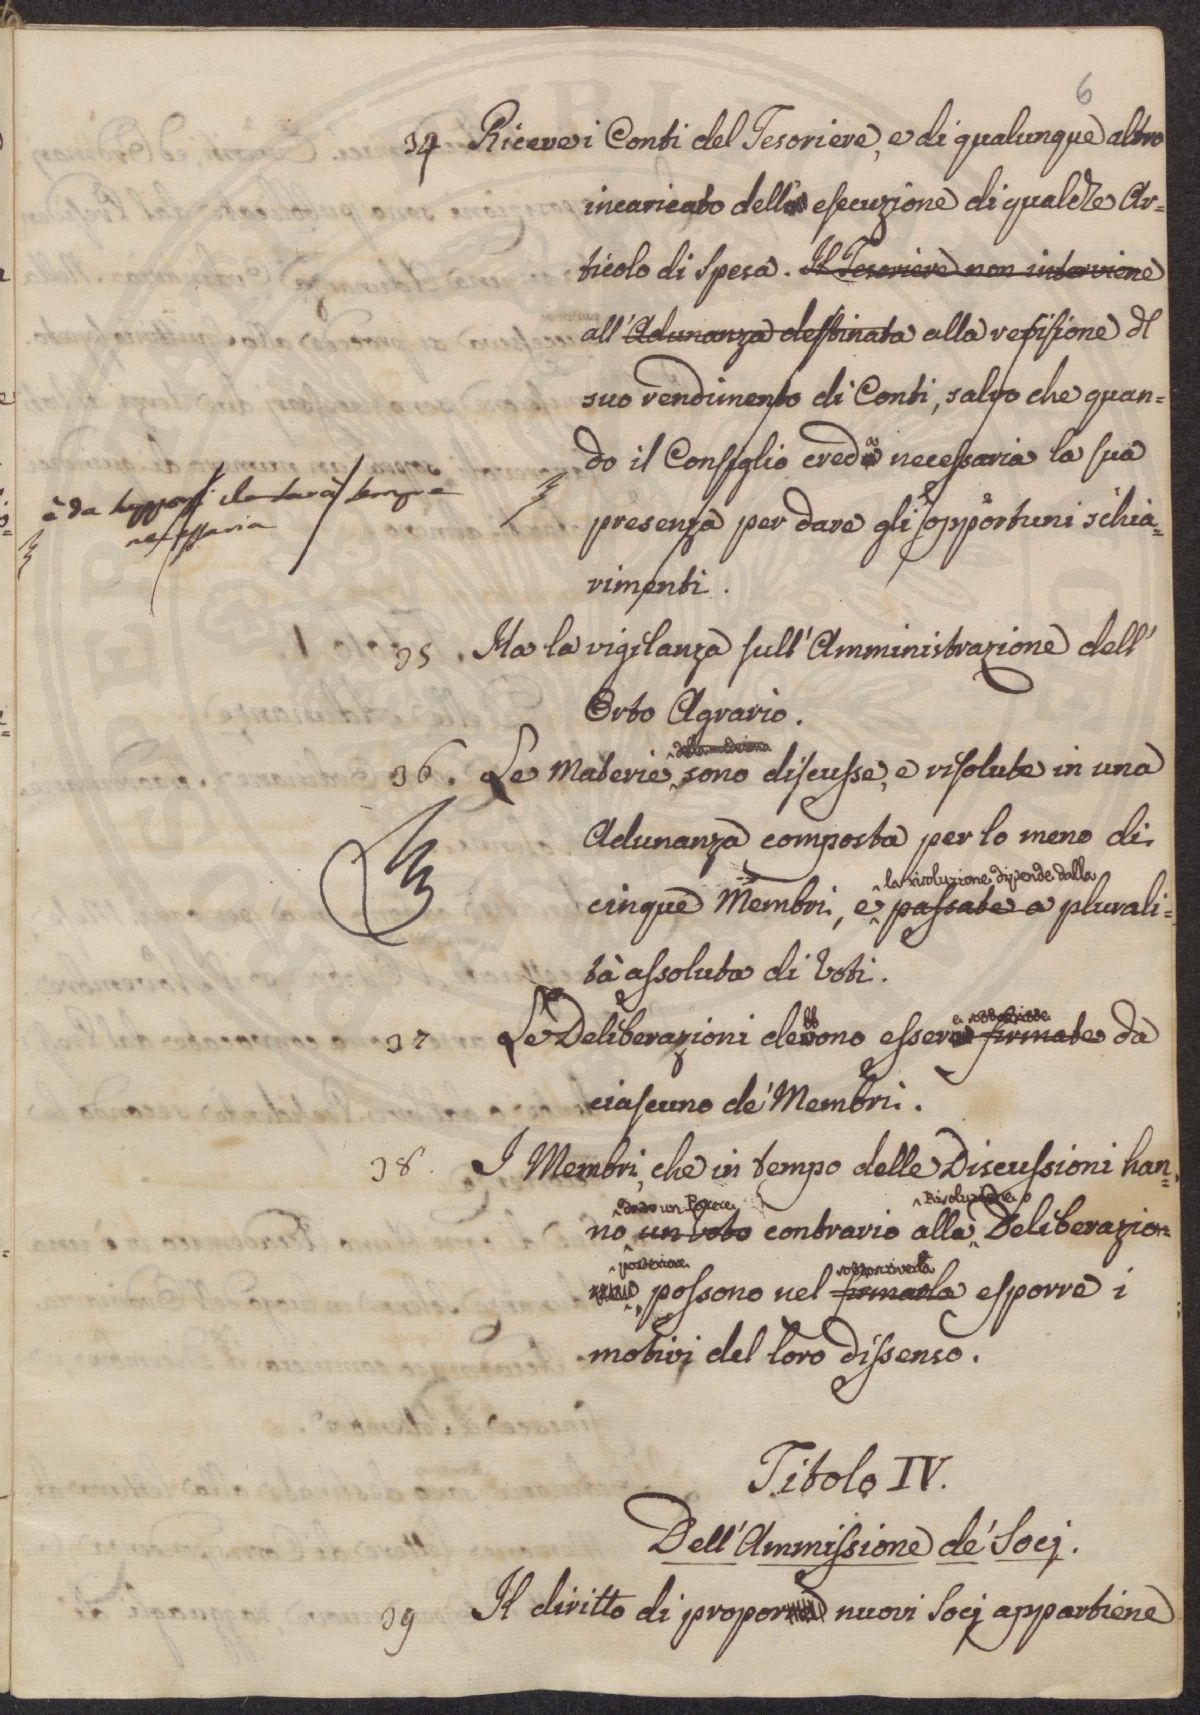 6
34 Riceve i Conti del Tesoriere, e di qualunque altro
incaricato dell' esecuzione di qualche Ar=
ticolo di Spesa. Il Tesoriere non interviene
all'Adunanza destinata alla revisione del
suo rendimento di Conti, salvo che quan=
do il Consiglio creda necessaria la sua
presenza per dare gli opportuni schia=
rimenti.
è da sempre
necessaria
35. Ha la vigilanza sull'Amministrazione dell'
Orto Agrario.
36. Le Materie sono discusse, e risolute in una
Adunanza composta per lo meno di
la risoluzione dipende dalla
cinque Membri, e passate a plurali=
tà assoluta di Voti.
e sottoscritte
37 Le Deliberazioni debbono essere firmate da
ciascuno de' Membri.
38. I Membri, che in tempo delle Discussioni han=
un Parere Risoluzione o
no un voto contrario alla Deliberazion=
posteriore sottoscriverla
possono nel firmarla esporre i
motivi del loro dissenso.
Titolo IV.
Dell'Ammissione de' Socj.
39 Il diritto di propor nuovi Socj appartiene